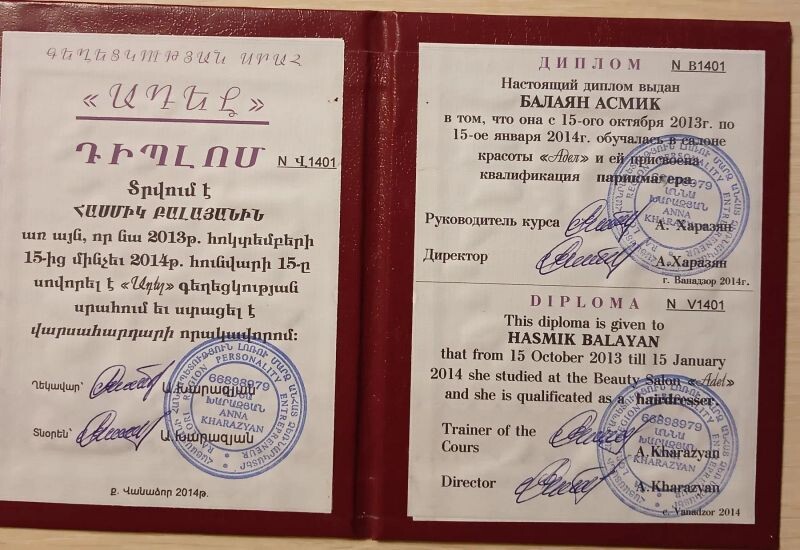 ԳԵՂԵՑԿՈՒԹՅԱՆ ՍՐԱՀ
«ԱԴԵԼ»
ԴԻՊԼՈՄ N Վ1401
Տրվում է
ՀԱՍՄԻԿ ԲԱԼԱՅԱՆԻՆ
առ այն, որ նա 2013թ. հոկտեմբերի
15-ից մինչեւ 2014թ. հունվարի 15-ը
սովորել է «Ադել» գեղեցկության
սրահում եւ ստացել է
վարսահարդարի որակավորում:
Ղեկավար՝ Ա.Խարազյան
Տնօրեն՝ Ա.Խարազյան
ք. Վանաձոր 2014թ.
66898979
ԱՆՆԱ
ԽԱՐԱԶՅԱՆ
ANNA
KHARAZYAN
ДИПЛОМ N В1401
Настоящий диплом выдан
БАЛАЯН АСМИК
в том, что она с 15-ого октября 2013г. по
15-ое января 2014г. обучалась в салоне
красоты «Adel» и ей присвоена
квалификация парикмахера
Руководитель курса А. Харазян
Директор А.Харазян
г. Ванадзор 2014г.
DIPLOMA N V1401
This diploma is given to
HASMIK BALAYAN
that from 15 October 2013 till 15 January
2014 she studied at the Beauty Salon «Adel»
and she is qualified as a hairdresser.
Trainer of the
Cours A.Kharazyan
Director A.Kharazyan
c. Vanadzor 2014